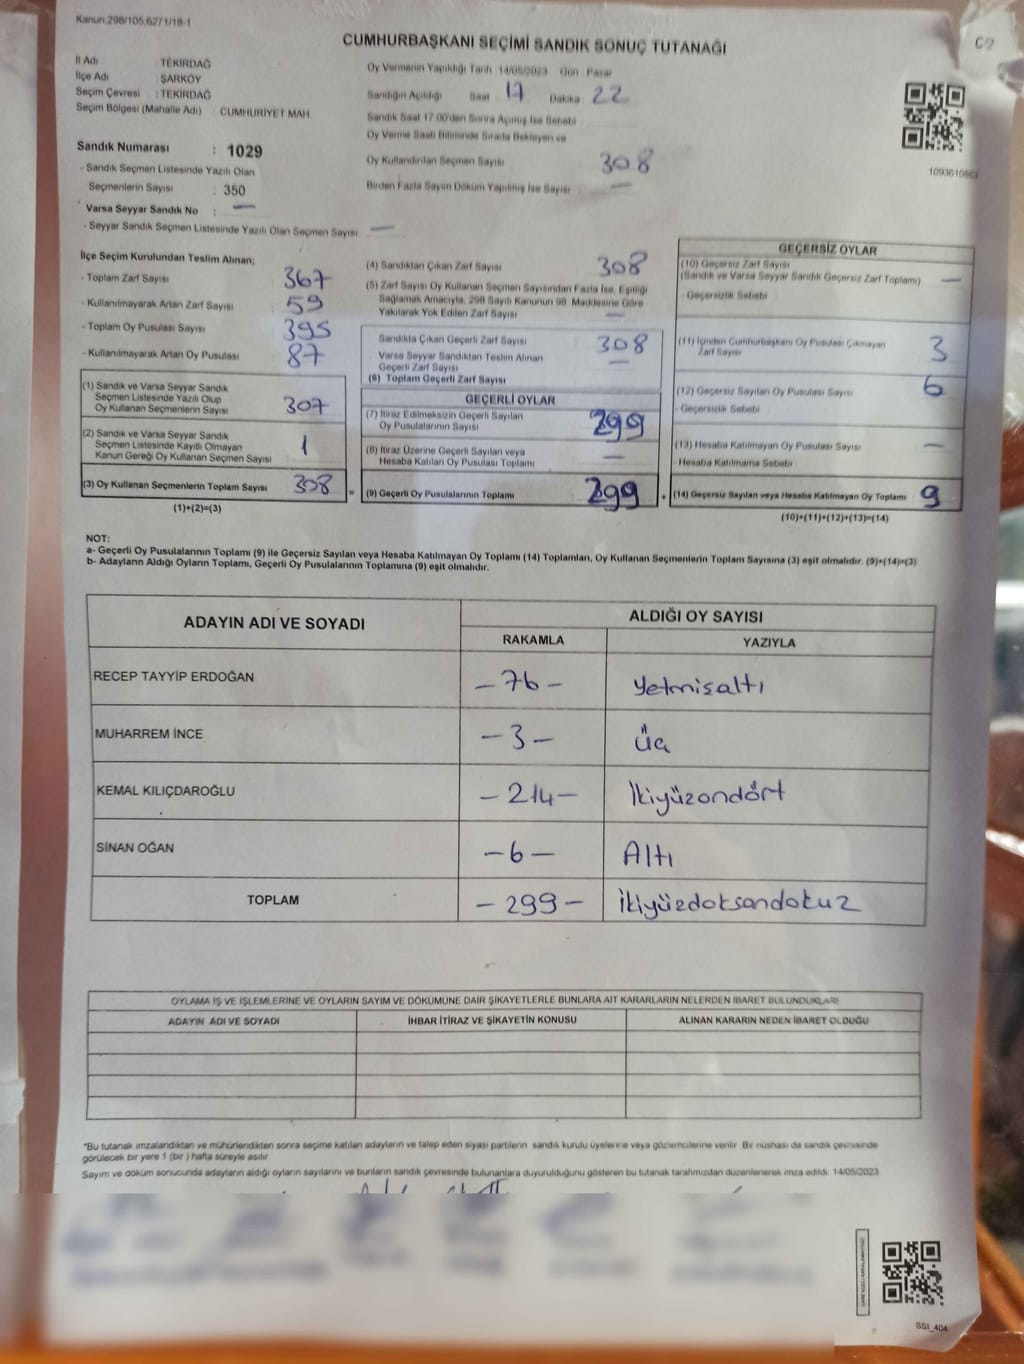 Kanun:298/105,6271/18-1
C7
CUMHURBAŞKANI SEÇİMİ SANDIK SONUÇ TUTANAĞI
İl Adı : TEKİRDAĞ
İlçe Adı : ŞARKÖY
Seçim Çevresi : TEKİRDAĞ
Seçim Bölgesi (Mahalle Adı) : CUMHURİYET MAH.
Sandık Numarası : 1029
- Sandık Seçmen Listesinde Yazılı Olan
Seçmenlerin Sayısı : 350
Varsa Seyyar Sandık No : —
- Seyyar Sandık Seçmen Listesinde Yazılı Olan Seçmen Sayısı : —
Oy Vermenin Yapıldığı Tarih :14/05/2023 Gün : Pazar
Sandığın Açıldığı Saat 17 Dakika 22
Sandık Saat 17.00'den Sonra Açımış İse Sebebi
Oy Verme Saati Bitiminde Sırada Bekleyen ve
Oy Kullandırılan Seçmen Sayısı 308
Birden Fazla Sayım Döküm Yapılmış İse Sayısı —
1093610863
İlçe Seçim Kurulundan Teslim Alınan;
- Toplam Zarf Sayısı 367
- Kullanılmayarak Artan Zarf Sayısı 59
- Toplam Oy Pusulası Sayısı 395
- Kullanılmayarak Artan Oy Pusulası 87
(1) Sandık ve Varsa Seyyar Sandık
Seçmen Listesinde Yazılı Olup
Oy Kullanan Seçmenlerin Sayısı 307
(2) Sandık ve Varsa Seyyar Sandık
Seçmen Listesinde Kayıtlı Olmayan
Kanun Gereği Oy Kullanan Seçmen Sayısı 1
(3) Oy Kullanan Seçmenlerin Toplam Sayısı 308
(1)+(2)=(3)
(4) Sandıktan Çıkan Zarf Sayısı 308
(5) Zarf Sayısı Oy Kullanan Seçmen Sayısından Fazla İse, Eşitliği
Sağlamak Amacıyla, 298 Sayılı Kanunun 98. Maddesine Göre
Yakılarak Yok Edilen Zarf Sayısı —
Sandıkta Çıkan Geçerli Zarf Sayısı 308
Varsa Seyyar Sandıktan Teslim Alınan
Geçerli Zarf Sayısı —
(6) Toplam Geçerli Zarf Sayısı
GEÇERLİ OYLAR
(7) İtiraz Edilmeksizin Geçerli Sayılan
Oy Pusulalarının Sayısı 299
(8) İtiraz Üzerine Geçerli Sayılan veya
Hesaba Katılan Oy Pusulası Toplamı —
= (9) Geçerli Oy Pusulalarının Toplamı 299
GEÇERSİZ OYLAR
(10) Geçersiz Zarf Sayısı
(Sandık ve Varsa Seyyar Sandık Geçersiz Zarf Toplamı) —
- Geçersizlik Sebebi
(11) İçinden Cumhurbaşkanı Oy Pusulası Çıkmayan
Zarf Sayısı 3
(12) Geçersiz Sayılan Oy Pusulası Sayısı 6
- Geçersizlik Sebebi
(13) Hesaba Katılmayan Oy Pusulası Sayısı —
- Hesaba Katılmama Sebebi
+ (14) Geçersiz Sayılan veya Hesaba Katılmayan Oy Toplamı 9
(10)+(11)+(12)+(13)=(14)
NOT:
a- Geçerli Oy Pusulalarının Toplamı (9) ile Geçersiz Sayılan veya Hesaba Katılmayan Oy Toplamı (14) Toplamları, Oy Kullanan Seçmenlerin Toplam Sayısına (3) eşit olmalıdır. (9)+(14)=(3)
b- Adayların Aldığı Oyların Toplamı, Geçerli Oy Pusulalarının Toplamına (9) eşit olmalıdır.
ADAYIN ADI VE SOYADI
ALDIĞI OY SAYISI
RAKAMLA YAZIYLA
RECEP TAYYİP ERDOĞAN -76- Yetmisaltı
MUHARREM İNCE -3- Üç
KEMAL KILIÇDAROĞLU -214- İkiyüzondört
SİNAN OĞAN -6- Altı
TOPLAM -299- İkiyüzdoksandokuz
OYLAMA İŞ VE İŞLEMLERİNE VE OYLARIN SAYIM VE DÖKÜMÜNE DAİR ŞİKAYETLERLE BUNLARA AİT KARARLARIN NELERDEN İBARET BULUNDUKLARI
ADAYIN ADI VE SOYADI İHBAR İTİRAZ VE ŞİKAYETİN KONUSU ALINAN KARARIN NEDEN İBARET OLDUĞU
"Bu tutanak imzalandıktan ve mühürlendikten sonra seçime katılan adayların ve talep eden siyasi partilerin sandık kurulu üyelerine veya gözlemcilerine verilir. Bir nüshası da sandık çevresinde
görülecek bir yere 1 (bir ) hafta süreyle asılır.
Sayım ve döküm sonucunda adayların aldığı oyların sayılarını ve bunların sandık çevresinde bulunanlara duyurulduğunu gösteren bu tutanak tarafımızdan düzenlenerek imza edildi. 14/05/2023
SSI_404